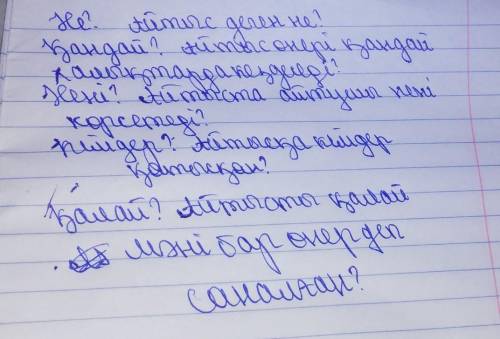 Не? Айтыс деген не?
Қандай? Айтыс өнері қандай
халықтарда кездеседі?
Нені? Айтыста айтушы нені
көрсетеді?
Кімдер? Айтысқа кімдер
қатысқан?
Қалай? Айтысты қалай
мәні бар өнер деп
саналған?